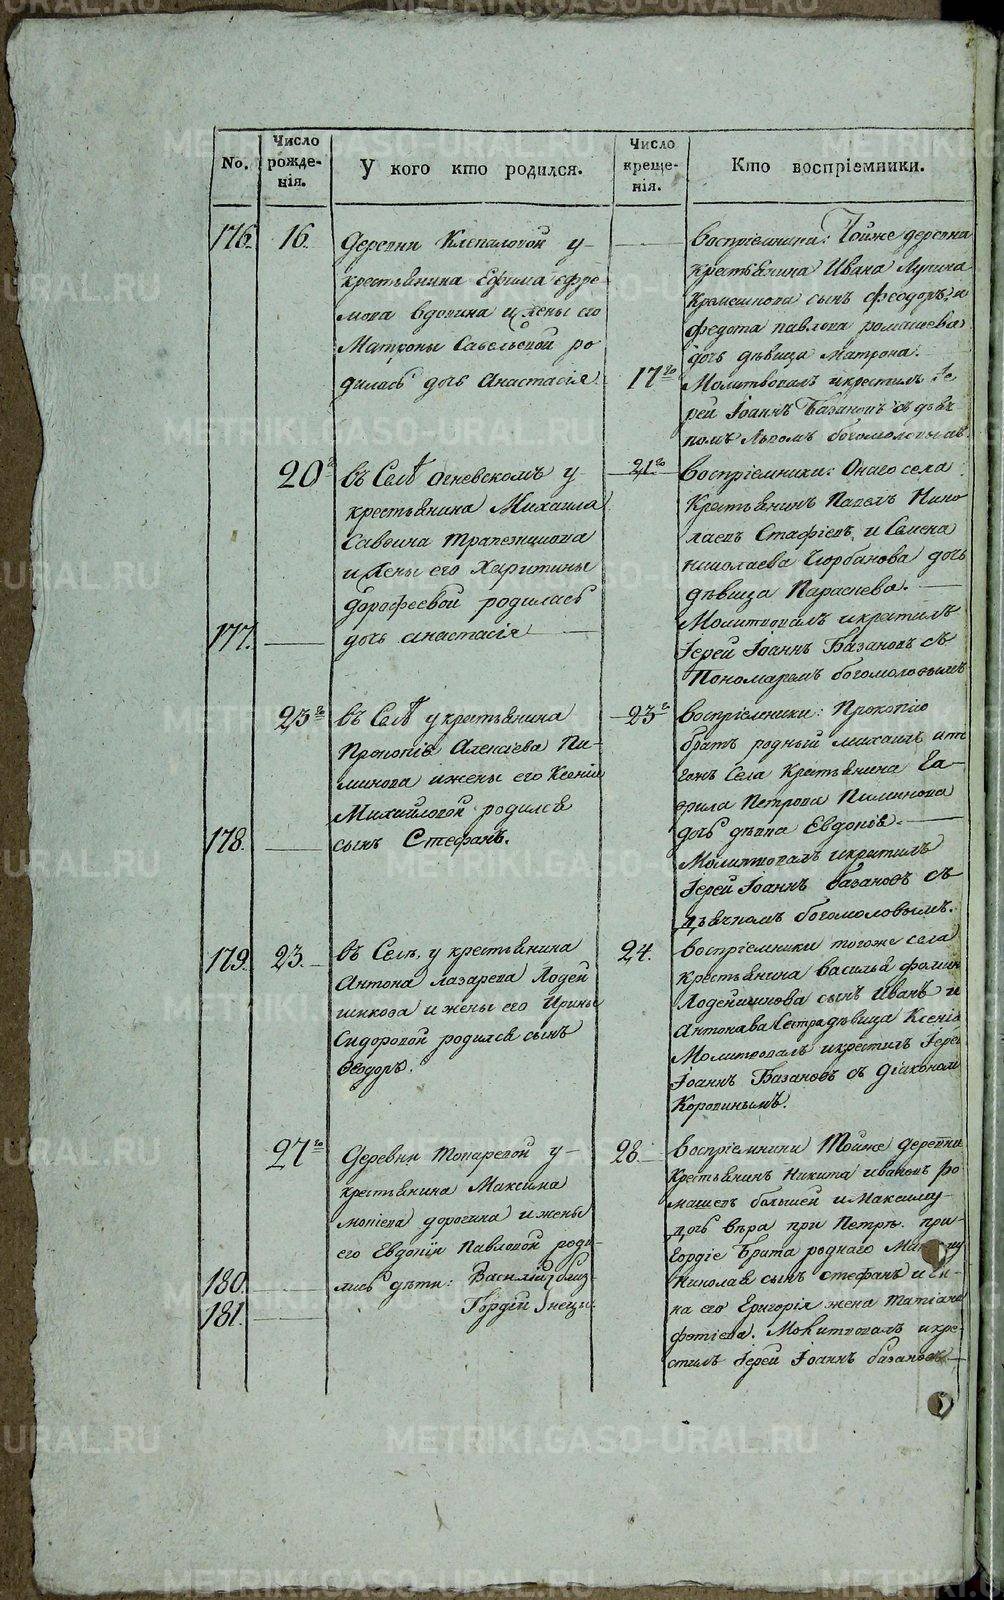 No.
Число рожде-
нія.
У кого кто родился.
Число креще-
нія.
Кто воспріемники.
176. 16.
Деревни Клепаловой у
крестьянина Ефима Ефре-
мова Вдовина и жены его
Матроны Савельевой ро-
дилась дочь Анастасія.
17го
воспріемники: Тойже деревни
крестьянина Ивана Лупина
сынъ Феодоръ, а
Федота Павлова Ромашева
дочь дѣвица Матрона.
Молитвовалъ и крестилъ Іе-
рей Іоаннъ Базановъ съ дьяч-
комъ
20го
въ Селѣ Огневскомъ у
крестьянина Михаила
Саввина Трапезникова
и жены его Харитины
Дорофеевой родилась
177.
дочь Анастасія
21го
воспріемники: Онаго села
Крестьянинъ Павелъ Нико-
лаевъ Стафіевъ, и Семена
Николаева Чюрбанова дочь
дѣвица Параскева.
Молитвовалъ и крестилъ
Іерей Іоаннъ Базановъ съ
Пономаремъ Богомоловымъ
23го
въ Селѣ у крестьянина
Прокопія Алексіева Пи-
минова и жены его Ксеніи
Михайловой родился
178.
сынъ Стефанъ.
23го
воспріемники: Прокопію
братъ родный Михаилъ и т-
гожъ Села Крестьянина Га-
врила Петрова Пиминова
дочь дѣвка Евдокія.
Молитвовалъ и крестилъ
Іерей Іоаннъ Базановъ съ
дьячкомъ Богомоловымъ.
179. 23.
въ Селѣ, у крестьянина
Антона Лазарева Лодей-
щикова и жены его Ирины
Сидоровой родился сынъ
Феодоръ.
24.
воспріемники тогоже села
крестьянина Василья Фомин
Лодейщикова сынъ Иванъ и
Антонова Сестра дѣвица Ксенія
Молитвовалъ и крестилъ Іерей
Іоаннъ Базановъ съ діакономъ
Коровинымъ.
27го
Деревни Токаревой у
крестьянина Максима
Мокіева Дорогина и жены
его Евдокіи Павловой роди-
180.
лись дѣти: Василій близ-
181.
Гордій нецы.
28.
воспріемники Тойже деревни
Крестьянинъ Никита Ивановъ Ро-
машевъ большей и Максиму
дочь Вѣра при Петрѣ. при
Гордіе Брата роднаго
Николая сынъ Стефанъ и сы-
на его Григорія жена Татіана
Фотіева. Молитвовалъ и кре-
стилъ Іерей Іоаннъ Базановъ
METRIKI.GASO-URAL.RU